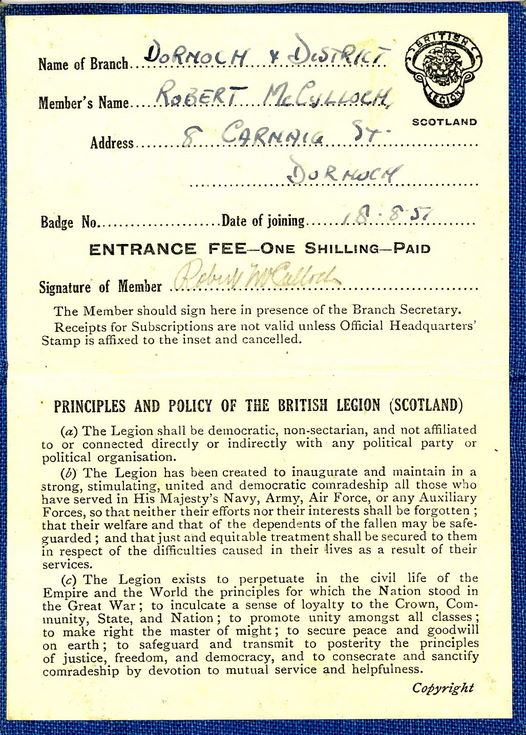 Name of Branch DORNOCH & DISTRICT
BRITISH
LEGION
SCOTLAND
Member's Name ROBERT McCULLOCH
Address 8 CARNAIG ST.
DORNOCH
Badge No. Date of joining 18.8.51
ENTRANCE FEE—ONE SHILLING—PAID
Signature of Member Robert McCulloch
The Member should sign here in presence of the Branch Secretary.
Receipts for Subscriptions are not valid unless Official Headquarters'
Stamp is affixed to the inset and cancelled.
PRINCIPLES AND POLICY OF THE BRITISH LEGION (SCOTLAND)
(a) The Legion shall be democratic, non-sectarian, and not affiliated
to or connected directly or indirectly with any political party or
political organisation.
(b) The Legion has been created to inaugurate and maintain in a
strong, stimulating, united and democratic comradeship all those who
have served in His Majesty's Navy, Army, Air Force, or any Auxiliary
Forces, so that neither their efforts nor their interests shall be forgotten ;
that their welfare and that of the dependents of the fallen may be safe-
guarded ; and that just and equitable treatment shall be secured to them
in respect of the difficulties caused in their lives as a result of their
services.
(c) The Legion exists to perpetuate in the civil life of the
Empire and the World the principles for which the Nation stood in
the Great War ; to inculcate a sense of loyalty to the Crown, Com-
munity, State, and Nation ; to promote unity amongst all classes ;
to make right the master of might ; to secure peace and goodwill
on earth ; to safeguard and transmit to posterity the principles
of justice, freedom, and democracy, and to consecrate and sanctify
comradeship by devotion to mutual service and helpfulness.
Copyright